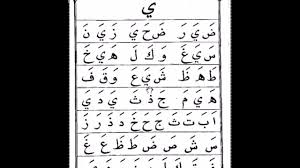 ي
ضَيَرَ ضَحَيَ زَيَنَ
سَيَغَ وَكَلَ هَيَخَ
طَهَظَ شَيَعَ وَقَفَ
هَيَمَ جَذَثَ يَدَيَ
اَ بَ تَ ثَ جَ حَ خَ دَ ذَ رَ زَ
سَ شَ صَ ضَ طَ ظَ عَ غَ